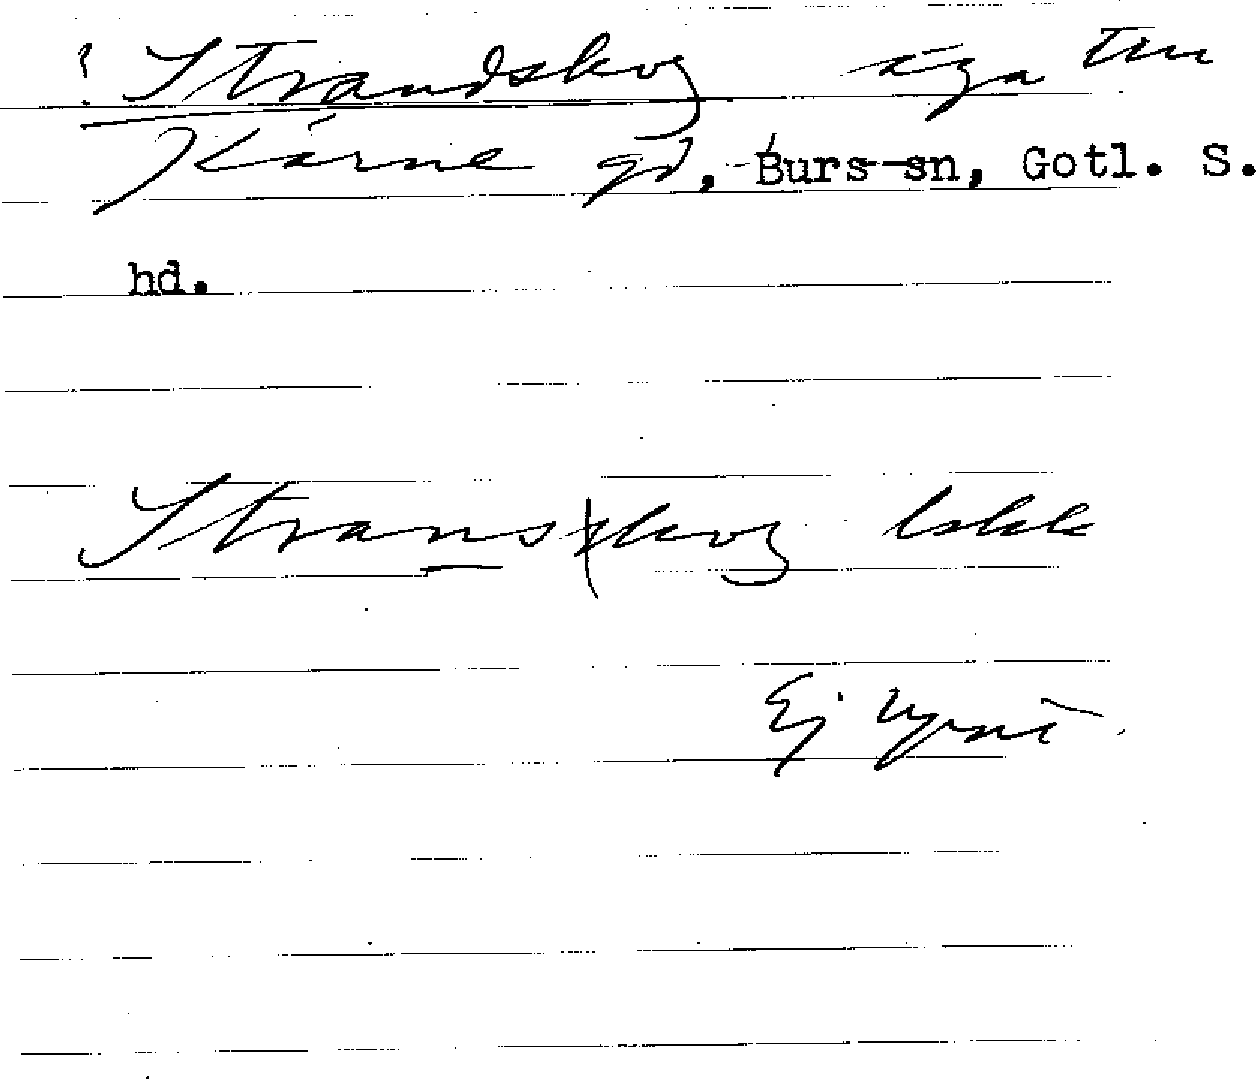 ! Strandskog äga till
Kärne gd, Burs sn, Gotl. S.
hd.
Stranskog lskk
Ej uppt.